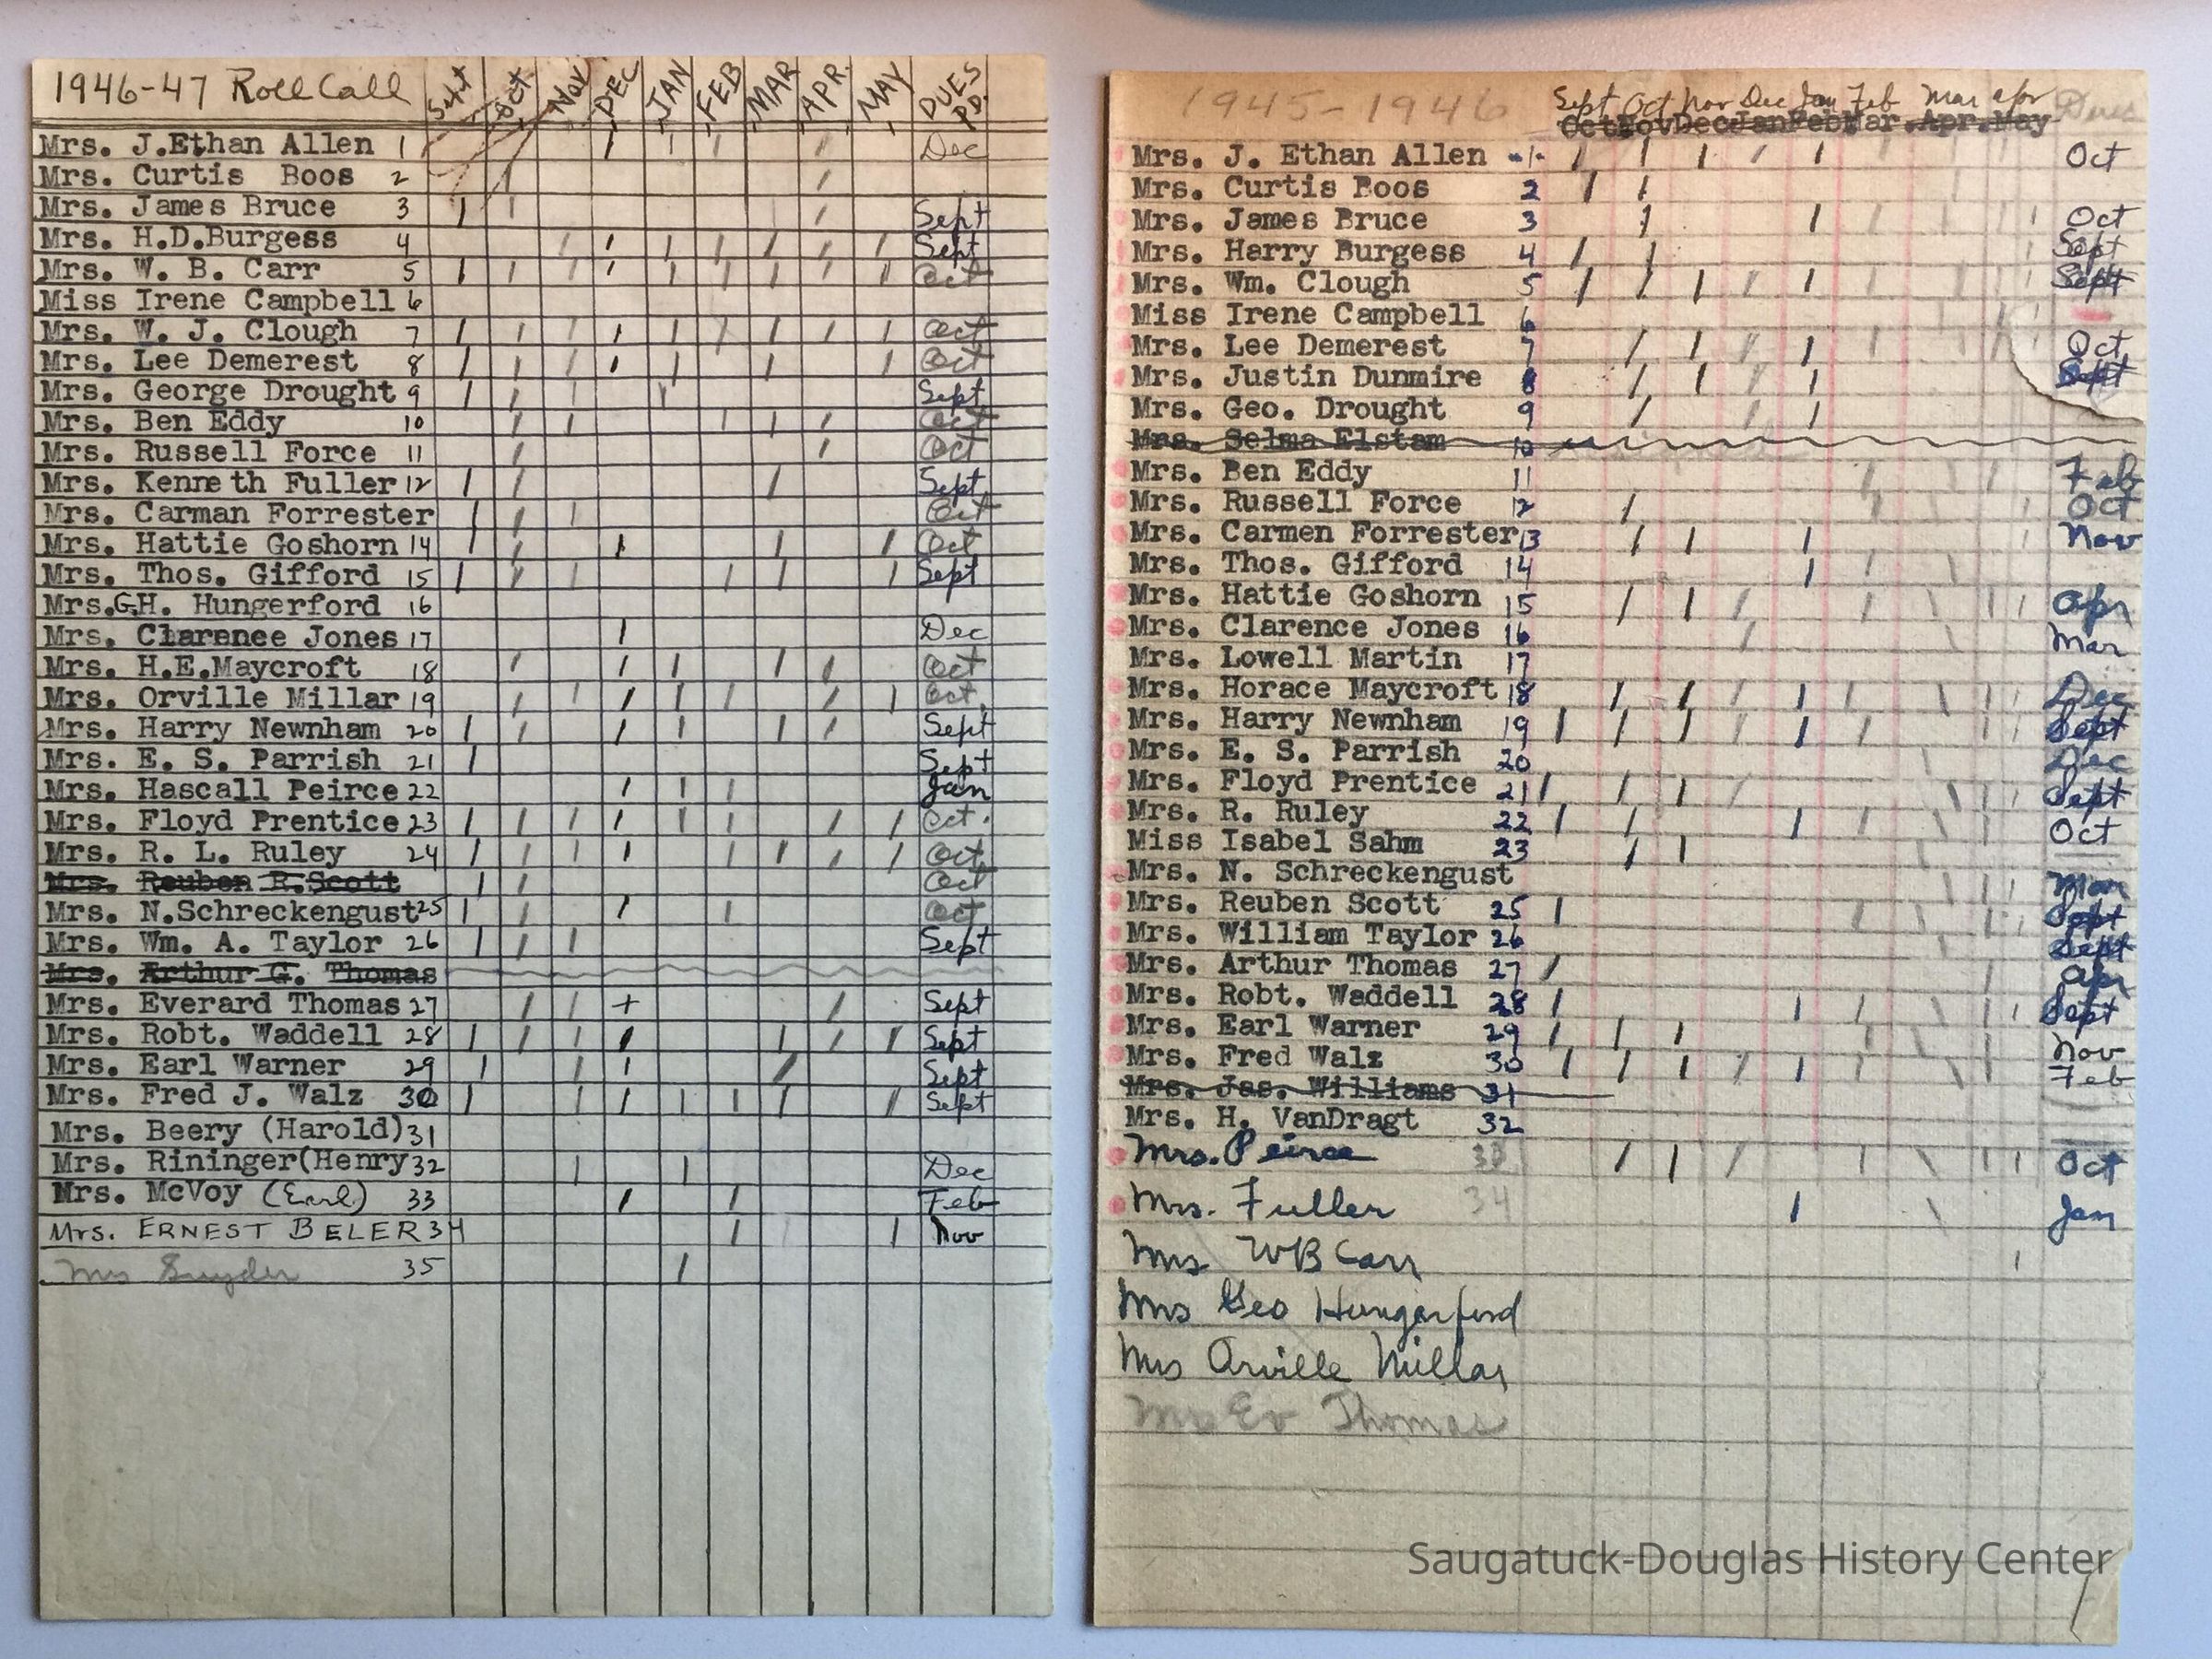 1946-47 Roll Call Sept Oct Nov DEC JAN FEB MAR APR. MAY DUES PD.
Mrs. J.Ethan Allen 1 / / / / Dec
Mrs. Curtis Boos 2 / /
Mrs. James Bruce 3 / / / Sept
Mrs. H.D.Burgess 4 / / / / / / / Sept
Mrs. W. B. Carr 5 / / / / / / / / / Oct
Miss Irene Campbell 6
Mrs. W. J. Clough 7 / / / / / / / / / Oct
Mrs. Lee Demerest 8 / / / / / / / Oct
Mrs. George Drought 9 / / / / Sept
Mrs. Ben Eddy 10 / / / / / Oct
Mrs. Russell Force 11 / / Oct
Mrs. Kenneth Fuller 12 / / / Sept
Mrs. Carman Forrester / / / Oct
Mrs. Hattie Goshorn 14 / / / / / Oct
Mrs. Thos. Gifford 15 / / / / / / Sept
Mrs.G.H. Hungerford 16
Mrs. Clarence Jones 17 / Dec
Mrs. H.E.Maycroft 18 / / / / / Oct
Mrs. Orville Millar 19 / / / / / / / Oct.
Mrs. Harry Newnham 20 / / / / / / Sept
Mrs. E. S. Parrish 21 / Sept
Mrs. Hascall Peirce 22 / / / Jan
Mrs. Floyd Prentice 23 / / / / / / / / Oct.
Mrs. R. L. Ruley 24 / / / / / / / / Oct
Mrs. Reuben R.Scott / / Oct
Mrs. N.Schreckengust 25 / / / / Oct
Mrs. Wm. A. Taylor 26 / / / Sept
Mrs. Arthur G. Thomas
Mrs. Everard Thomas 27 / / + / Sept
Mrs. Robt. Waddell 28 / / / / / / / Sept
Mrs. Earl Warner 29 / / / / Sept
Mrs. Fred J. Walz 30 / / / / / / / Sept
Mrs. Beery (Harold) 31
Mrs. Rininger(Henry 32 / / Dec
Mrs. McVoy (Earl) 33 / / Feb
Mrs. ERNEST BELER 34 / / / Nov
Mrs Snyder 35 /
1945-1946 Sept Oct Nov Dec Jan Feb Mar Apr Dues
Oct Nov Dec Jan Feb Mar. Apr. May
Mrs. J. Ethan Allen 1 Oct
Mrs. Curtis Boos 2
Mrs. James Bruce 3 Oct
Mrs. Harry Burgess 4 Sept
Mrs. Wm. Clough 5 Sept
Miss Irene Campbell 6
Mrs. Lee Demerest 7 Oct
Mrs. Justin Dunmire 8 Sept
Mrs. Geo. Drought 9
Mrs. Selma Elstam 10
Mrs. Ben Eddy 11 Feb
Mrs. Russell Force 12 Oct
Mrs. Carmen Forrester 13 Nov
Mrs. Thos. Gifford 14
Mrs. Hattie Goshorn 15 Apr
Mrs. Clarence Jones 16 Mar
Mrs. Lowell Martin 17
Mrs. Horace Maycroft 18 Dec
Mrs. Harry Newnham 19 Sept
Mrs. E. S. Parrish 20 Dec
Mrs. Floyd Prentice 21 Sept
Mrs. R. Ruley 22 Oct
Miss Isabel Sahm 23
Mrs. N. Schreckengust Mar
Mrs. Reuben Scott 25 Sept
Mrs. William Taylor 26 Sept
Mrs. Arthur Thomas 27 Apr
Mrs. Robt. Waddell 28 Sept
Mrs. Earl Warner 29 Nov
Mrs. Fred Walz 30 Feb
Mrs. Jas. Williams 31
Mrs. H. VanDragt 32
Mrs. Peirce 33 Oct
Mrs. Fuller 34 Jan
Mrs WB Carr
Mrs Geo Hungerford
Mrs Orville Millar
Mrs Ev Thomas
Saugatuck-Douglas History Center